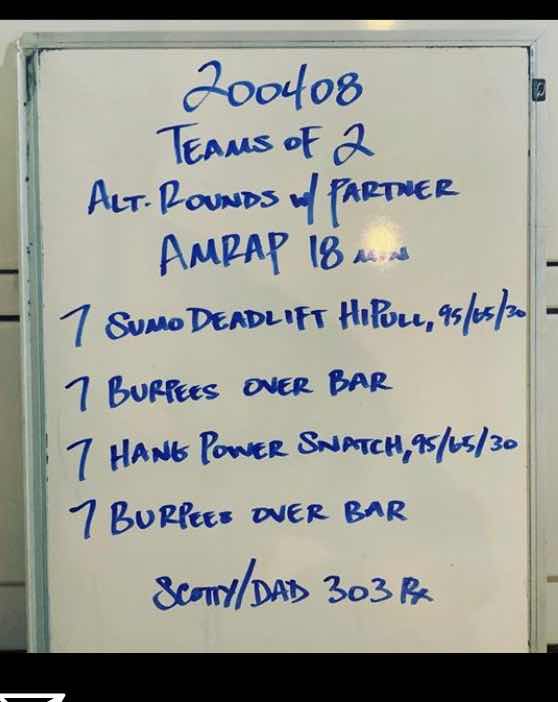 200408
TEAMS OF 2
ALT. ROUNDS w/ PARTNER
AMRAP 18 MIN
7 SUMO DEADLIFT HIPULL, 95/65/30
7 BURPEES OVER BAR
7 HANG POWER SNATCH, 95/65/30
7 BURPEES OVER BAR
SCOTTY/DAD 303 Rx